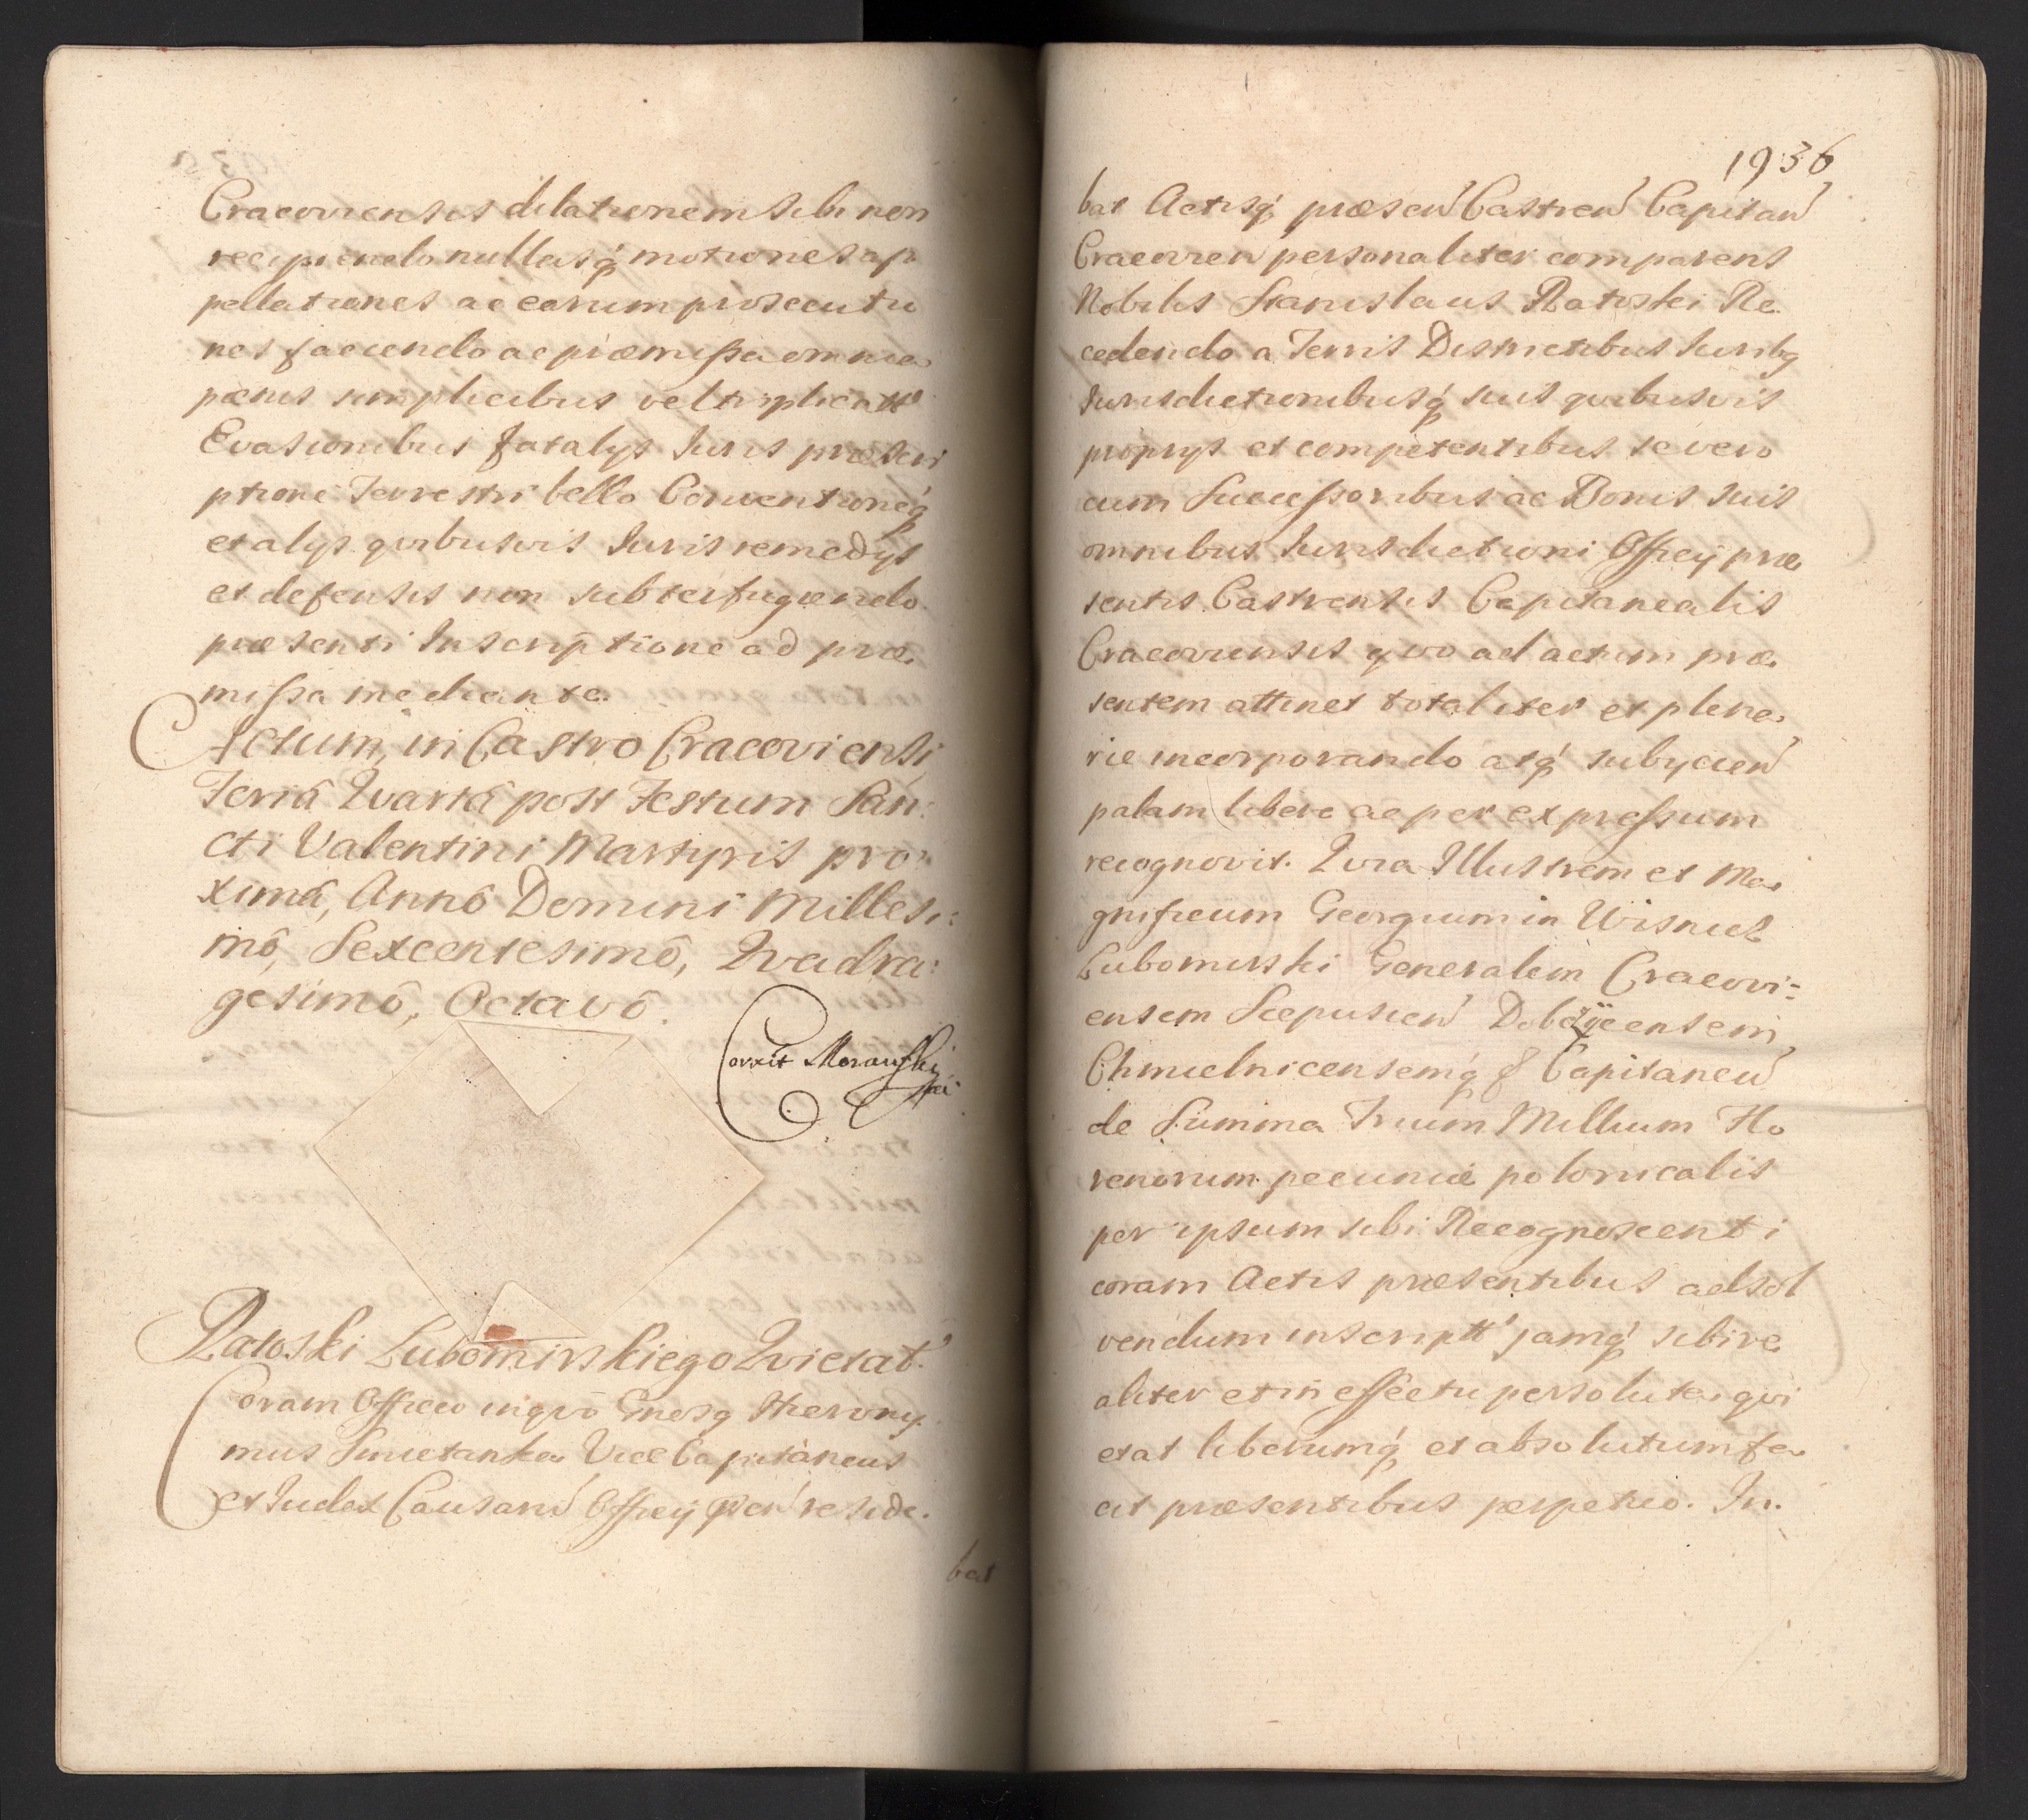 Cracoviensis dilationem sibi non
recipiendo nullasq́ motiones ap
pellationes ac earum prosecutio
nes faciendo ac præmissa omnia
pœnis simplicibus vel triplicatt
Evasionibus fatalys Iuris præscri
ptione Terrestri bello Conventioneq́
et alys qvibusvis Iuris remedys
et defensis non subterfugiendo
præsenti Inscriptione ad præ
missa mediante.
Actum, in Castro Cracoviensi
Feriâ Qvartâ post Festum San:
cti Valentini Martyris pro
ximâ, Annô Domini Millesi:
mô, Sexcentesimô, Qvadra:
gesimô, Octavô.
Corrxit Morawski
Ratoski Lubomirskiego Qvietat.
Coram Officio inqvo Gnosq Hierony
mus Smietanka Vice Capitaneus
et Iudex Causarū Officij pseñ reside.
bat
1936
bat Actisq́ præseñ Castreñ Capitañ
Cracovień personaliter comparens
Nobilis Stanislaus Ratoski Re
cedendo a Terris Districtibus Iuribq
Iurisdictionibusq́ suis qvibusvis
proprys et competentibus se vero
cum Successoribus ac Bonis suis
omnibus Iurisdictioni Officij præ
sentis Castrensis Capitanealis
Cracoviensis qvo ad actum præ
sentem attinet totaliter et plena
rie incorporando atq́ subycień
palam libere ac per expressum
recognovit. Qvia Illustrem et Ma
gnificum Georgium in Wisnicz
Lubomirski Generalem Cracovi-
ensem Scepusień Dobczÿcensem
Chmielnicensemq́ & Capitaneū
de Summa Trium Millium Flo
renorum pecuniæ polonicalis
per ipsum sibi Recognoscenti
coram Actis præsentibus adsol
vendum inscriptt jamq́ sibi re
aliter et in effectu persoluta qvi
etat liberumq́ et absolutum fa
cit præsentibus perpetuo. In.